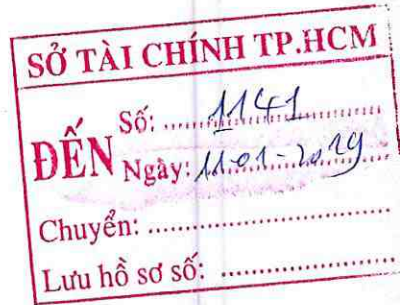 SỞ TÀI CHÍNH TP.HCM
ĐẾN
Số: 1141
Ngày: 11-01-2019
Chuyển:
Lưu hồ sơ số: